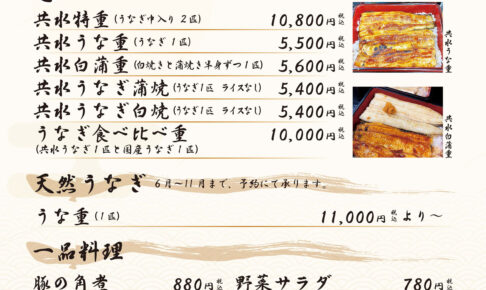 共水特重(うなぎ中入り 2匹) 10,800円税込
共水うな重(うなぎ1匹) 5,500円税込
共水白蒲重(白焼きと蒲焼き半身ずつ1匹) 5,600円税込
共水うなぎ蒲焼(うなぎ1匹 ライスなし) 5,400円税込
共水うなぎ白焼(うなぎ1匹 ライスなし) 5,400円税込
うなぎ食べ比べ重 10,000円税込
(共水うなぎ1匹と国産うなぎ1匹)
共水うな重
共水白蒲重
天然うなぎ 6月〜11月まで、予約にて承ります。
うな重(1匹) 11,000円税込より〜
一品料理
豚の角煮 880円税込 野菜サラダ 780円税込